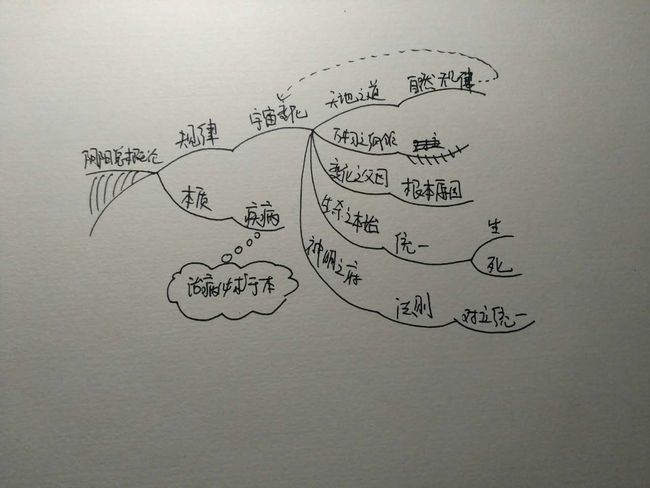 阴阳总概论
规律
宇宙变化
天地之道
自然规律
万物之纲纪
变化之父母
根本原因
生杀之本始
统一
生
死
神明之府
法则
对立统一
本质
疾病
治病必求于本